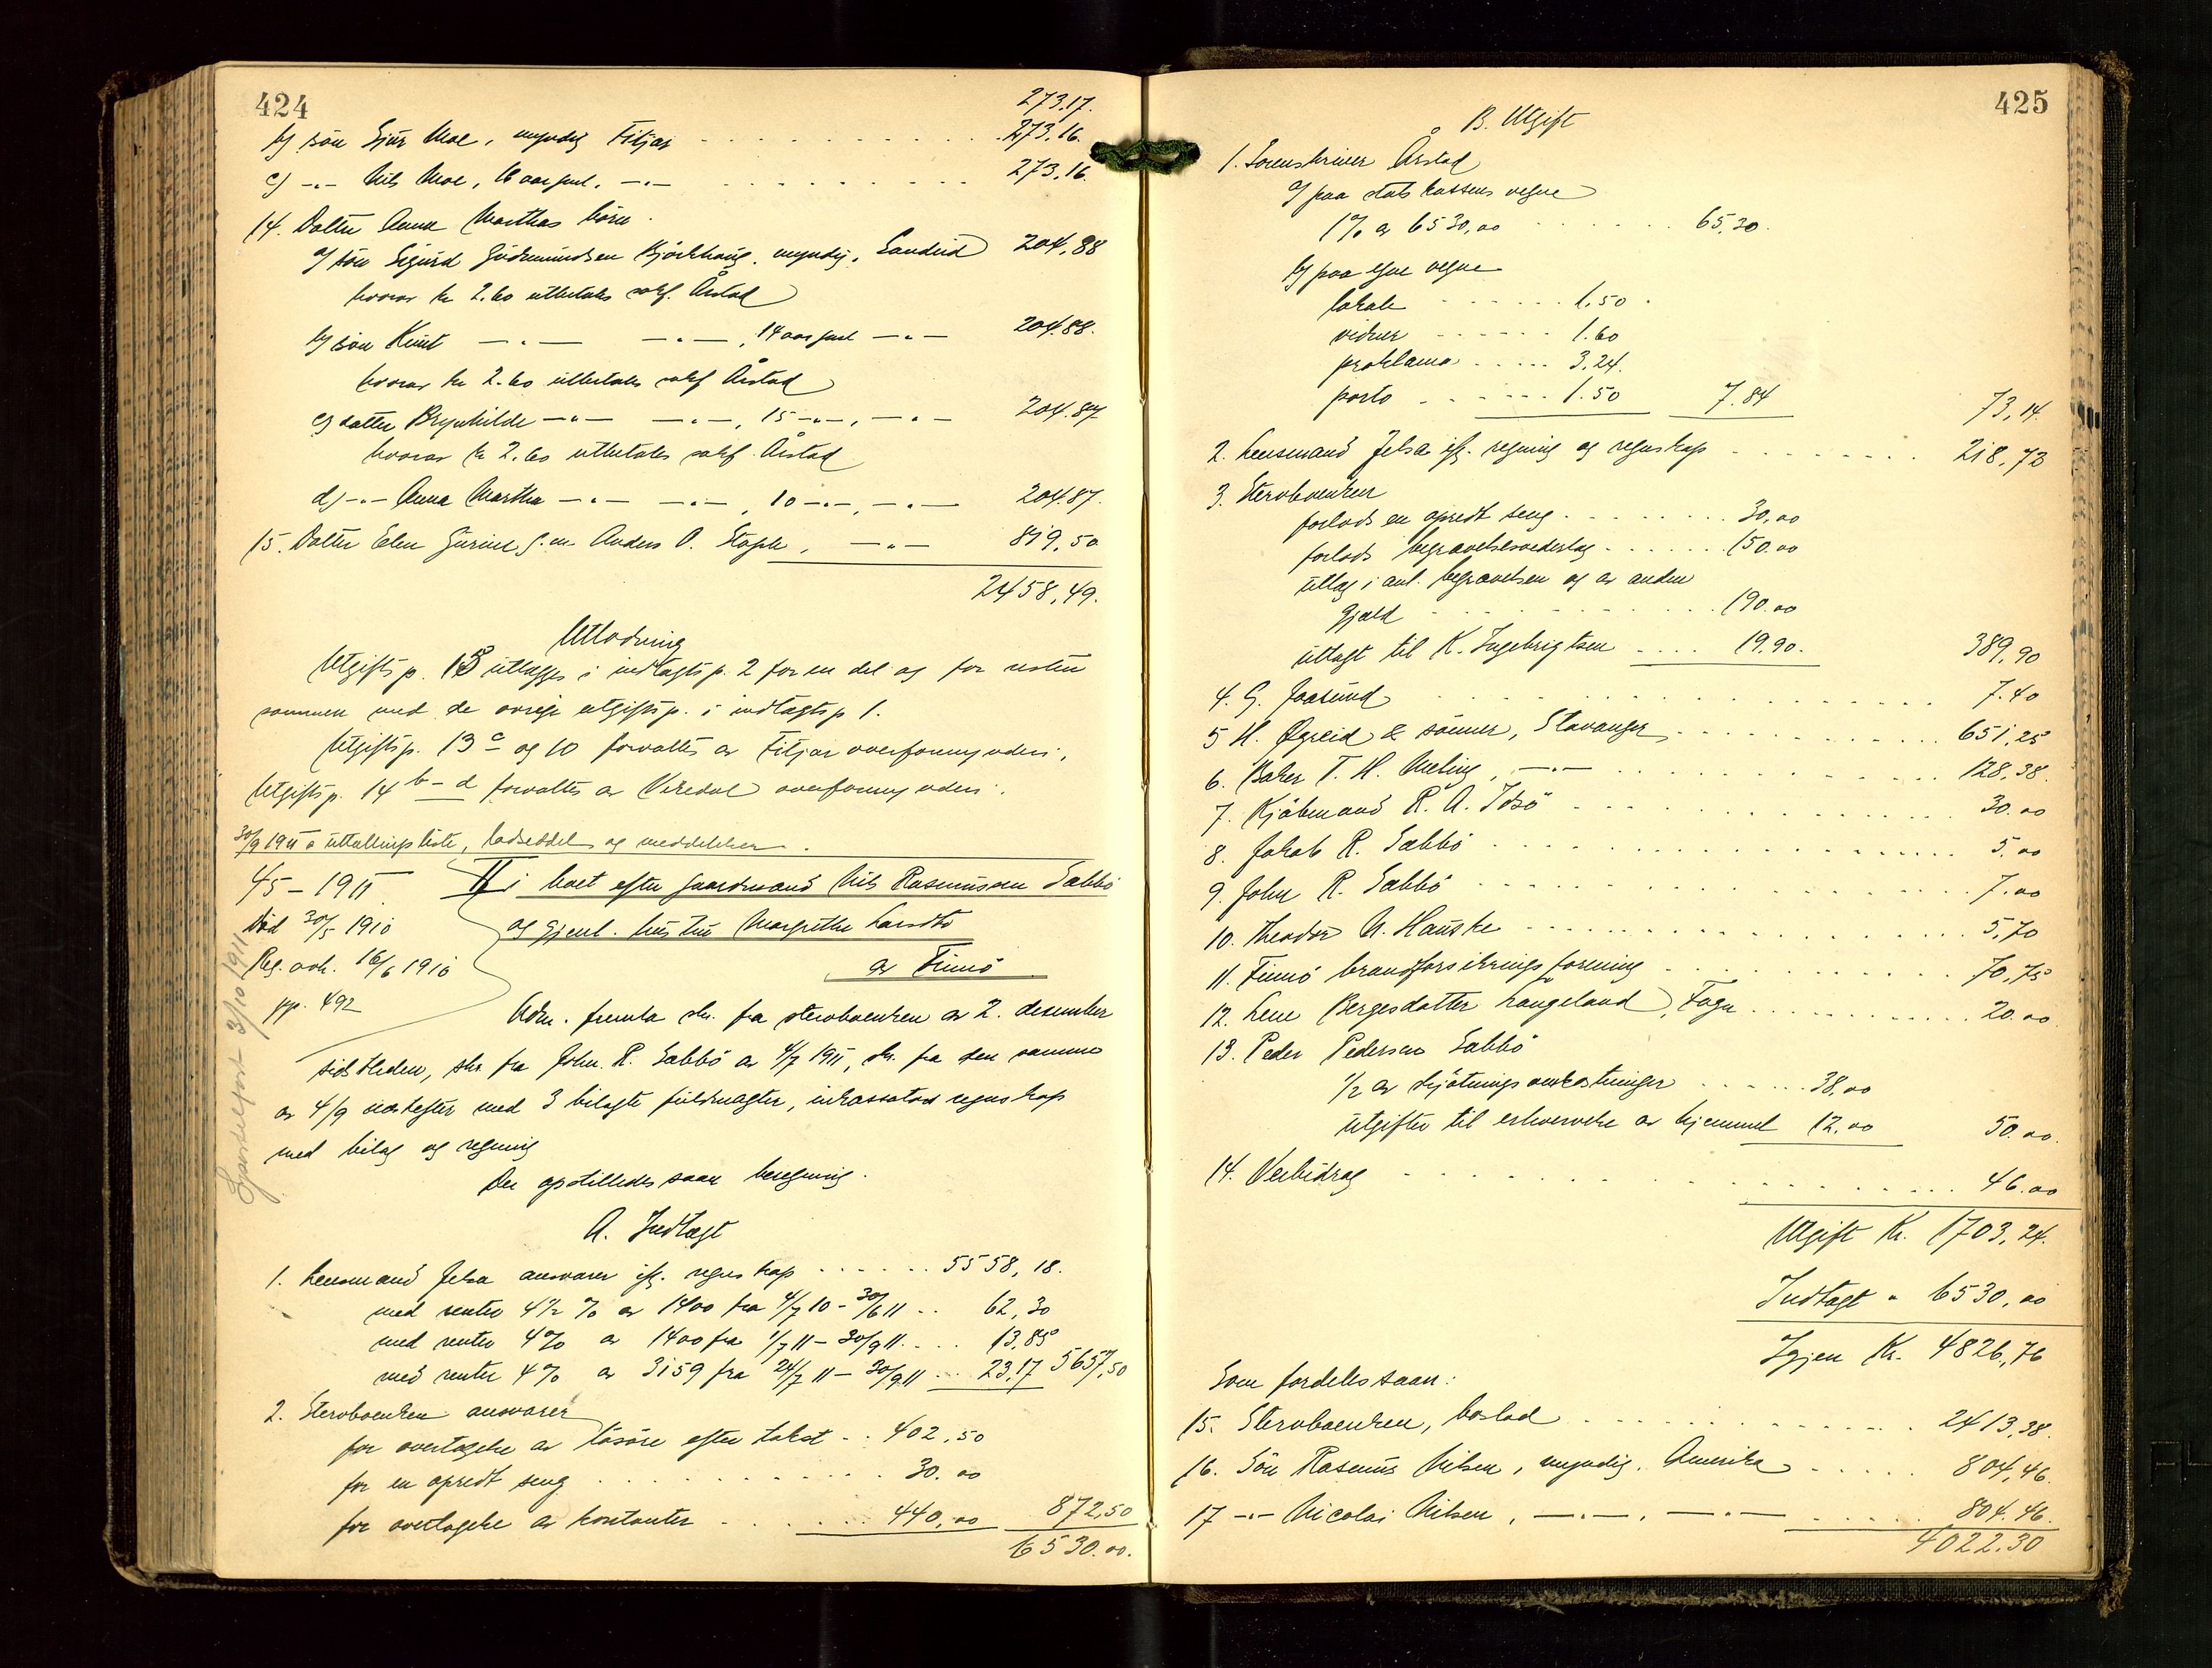 424
273.17.
b) søn Sjur Moe, myndig Filjar 273,16.
c) -"- Nils Moe, 16 aar gml. -"- 273,16.
14. Datter Anna Marthas børn.
a) søn Sigurd Gudmundsen Bjørkhaug, myndig, Sandeid 204,88
hvorav kr 2.60 utbetales sakf. Årstad
b) søn Knut -"- -"-, 14 aar gml -"- 204.88.
hvorav kr 2.60 utbetales sakf Årstad
c) datter Brynhilde -"- -"-, 15 -"-, -"- 204.87
hvorav kr 2.60 utbetales sakf. Årstad
d) -"- Anna Martha -"- -"-, 10 -"-, -"- 204.87.
15. Datter Elen Gurine g.m. Anders O. Stople, -"- 819,50
2458,49.
Utlodning
Utgiftsp. 15 utlægges i indtægtsp. 2 for en del og for resten
sammen med de øvrige utgiftsp. i indtægtsp 1.
Utgiftsp. 13 c og 10 forvaltes av Filjar overformynderi,
Utgiftsp. 14 b - d forvaltes av Vikedal overformynderi.
30/9 1911 utstallingsliste, lodseddel og meddelelser.
4/5 - 1911 II i boet efter gaardmand Nils Rasmussen Sabbø
Død 30/5 1910 og gjenl. hustru Margrethe Larsdtr
Reg. avh. 16/6 1910 av Finnø
pp. 492
Spardelefort 3/10 1911
Adm. fremla skr. fra stervboenken av 2. desember
sidstleden, skr fra John. R. Sabbø av 4/7 1911, skr. fra den samme
av 4/9 næstefter med 3 bilagte fuldmagter, inkassators regnskap
med bilag og regning
Der opstilledes saan beregning.
A. Indtægt
1. Lensmand Jelsa ansvarer ifg. regnskap 5558,18.
med renter 4½ % av 1400 fra 4/7 10 - 30/6 11 62,30
med renter 4% av 1400 fra 1/7 11 - 30/9 11 13,85
med renter 4% av 3159 fra 24/7 11 - 30/9 11 23,17 5657,50
2. Stervboenken ansvarer
for overtagelse av løsøre efter takst 402,50
for en opredt seng 30.00
for overtagelse av kontanter 440,00 872,50
6530.00.
425
B. Utgift
1. Sorenskriver Årstad
a) paa stats kassens vegne
1% av 6530,00 65,30.
b) paa egne vegne
lokale 1.50
vidner 1.60
proklama 3,24.
porto 1.50 7.84 73,14.
2. Lensmand Jelsa ifg. regning og regnskap 218,72
3. Stervboenken
forlods en opredt seng 30,00
forlods begravelsesvederlag 150.00
utlæg i anl. begravelsen og av anden
gjæld 190.00
utlagt til K. Ingebrigtsen 19.90. 389,90
4. G. Jaasund 7.40
5 H. Øgreid & sønner, Stavanger 651,25
6. Baker T. H. Meling, -"- 128,38.
7. Kjøbmand R. A. Idsø 30.00
8. Jakob R. Sabbø 5.00
9. John R. Sabbø 7.00
10. Theodor N. Hauske 5,70
11. Finnø brandforsikringsforening 70,75
12. Lene Bergesdatter Laugeland, Fogn 20.00
13. Peder Pedersen Sabbø
½ av skjøtningsomkostninger 38,00
utgifter til erhvervelse av hjemmel 12,00 50.00.
14. Veibidrag 46.00
Utgift Kr. 1703,24.
Indtægt " 6530,00
Igjen Kr. 4826,76
Som fordeles saan:
15. Stervboenken, boslod 2413,38.
16. Søn Rasmus Nilsen, myndig, Amerika 804,46.
17 -"- Nicolai Nilsen, -"-, -"- 804.46.
4022.30